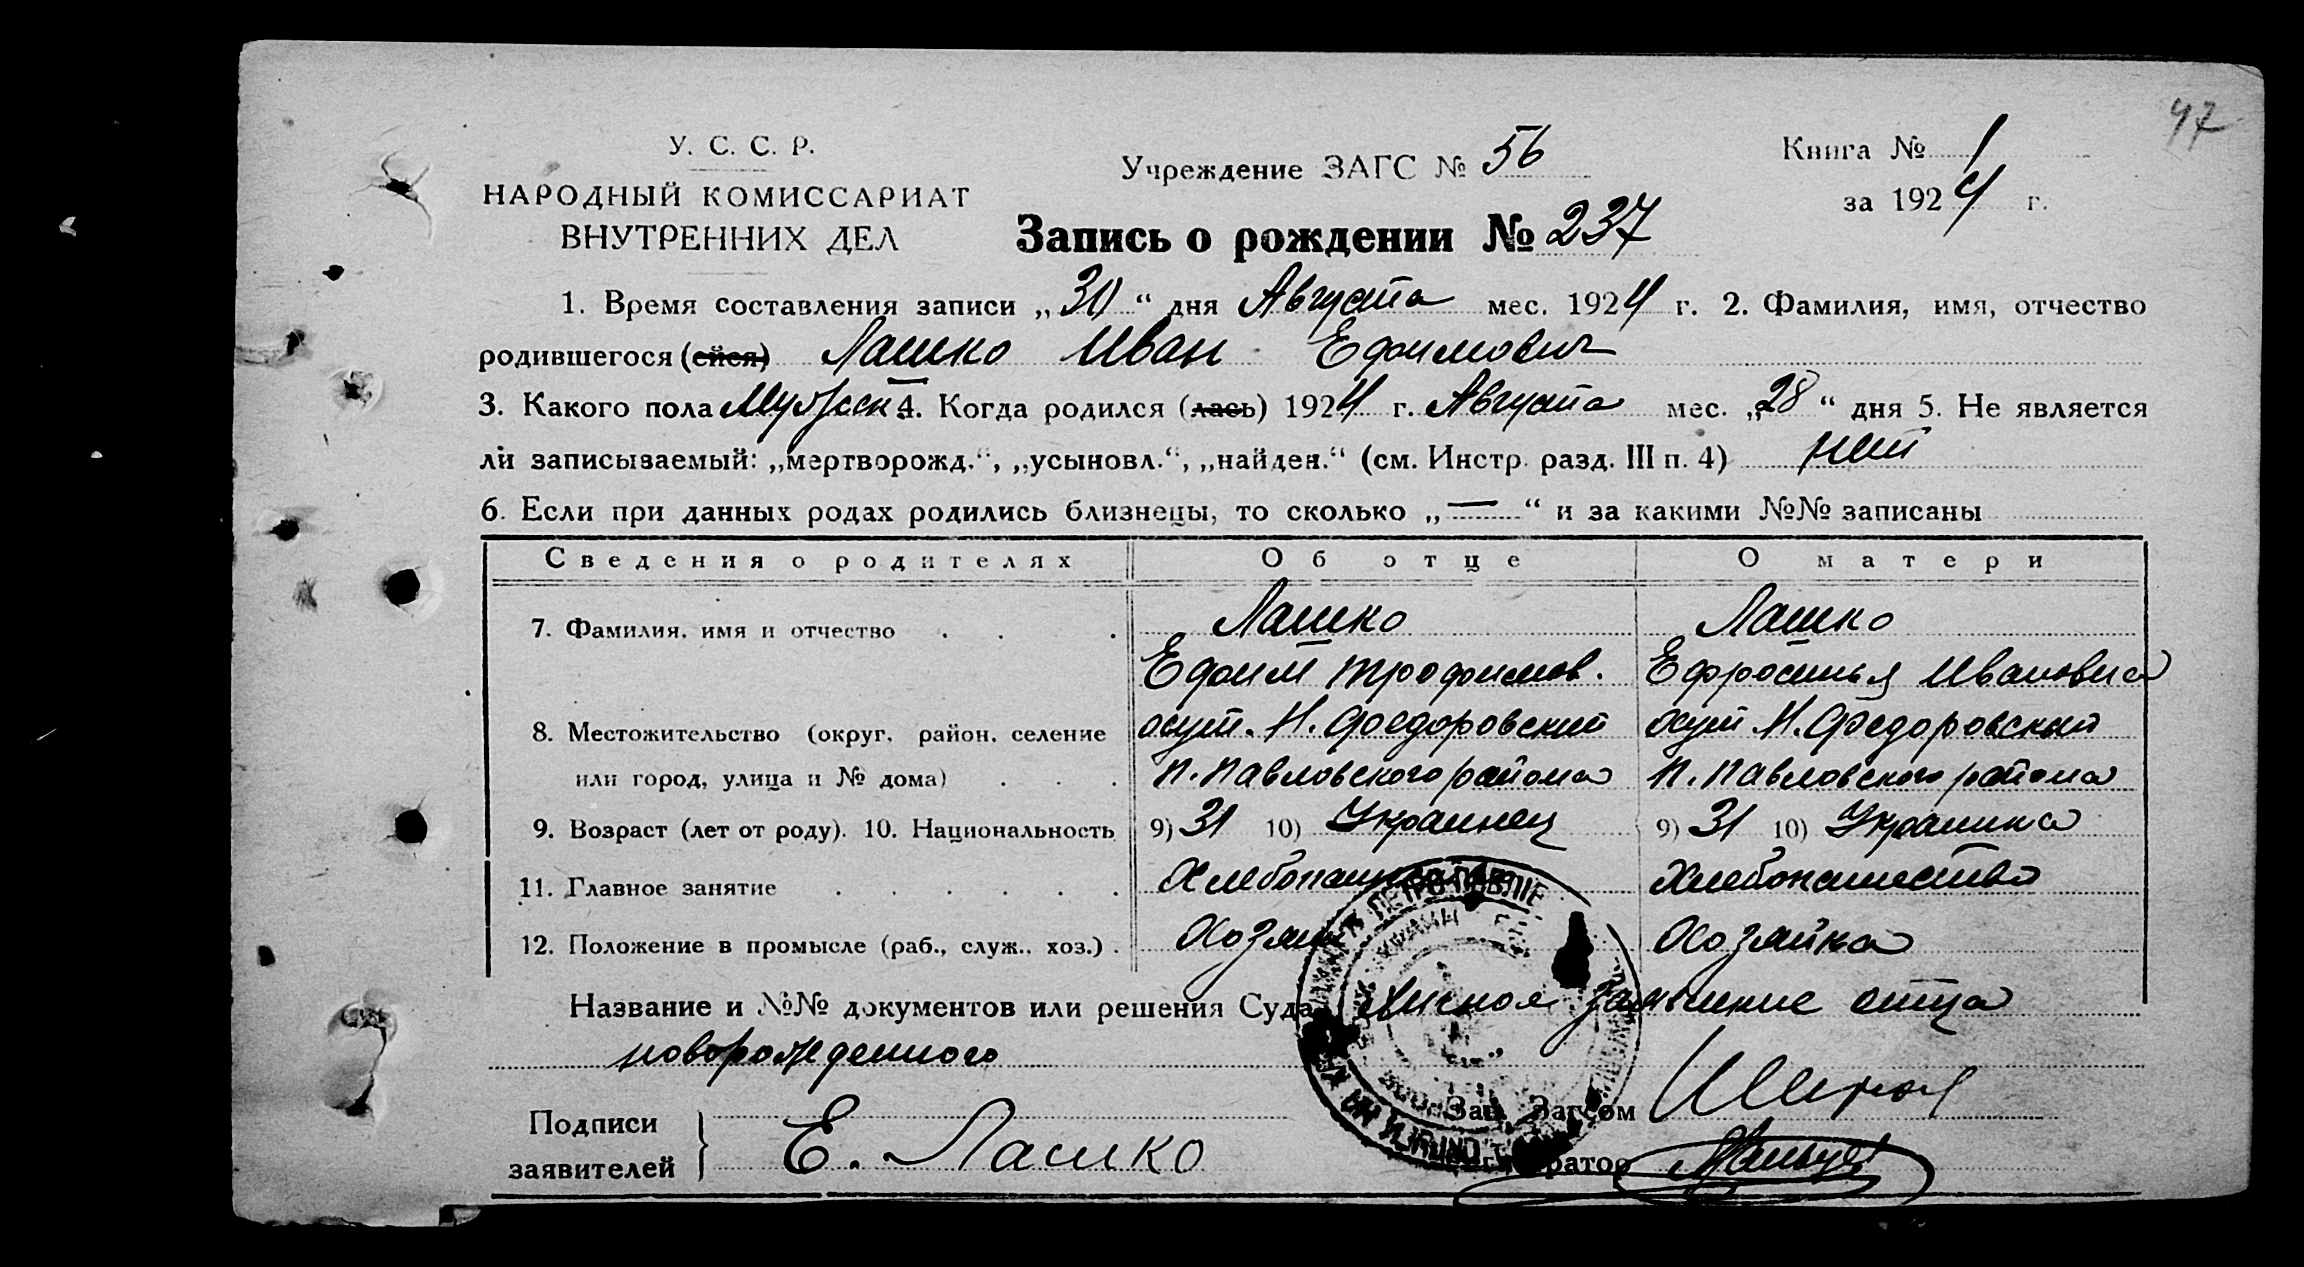 47
У. С. С. Р.
НАРОДНЫЙ КОМИССАРИАТ
ВНУТРЕННИХ ДЕЛ
Учреждение ЗАГС № 56
Книга № 1
за 1924 г.
Запись о рождении № 237
1. Время составления записи „30“ дня Августа мес. 1924 г. 2. Фамилия, имя, отчество
родившегося (ейся) Лашко Иван Ефимович
3. Какого пола Мужск 4. Когда родился (лась) 1924 г. Августа мес. „28“ дня 5. Не является
ли записываемый: „мертворожд.“, „усыновл.“, „найден.“ (см. Инстр. разд. III п. 4) нет
6. Если при данных родах родились близнецы, то сколько „—“ и за какими №№ записаны
Сведения о родителях Об отце О матери
7. Фамилия, имя и отчество Лашко Лашко
Ефим Трофимов. Ефросинья Ивановна
8. Местожительство (округ, район, селение хут. Н. Федоровский хут Н. Федоровский
или город, улица и № дома) П. Павловского района П. Павловского района
9. Возраст (лет от роду). 10. Национальность 9) 31 10) Украинец 9) 31 10) Украинка
11. Главное занятие Хлебопашество Хлебопашество
12. Положение в промысле (раб., служ., хоз.) Хозяин Хозяйка
Название и №№ документов или решения Суда заявление отца
новорожденного
Подписи
заявителей Е. Лашко
Зав. Загсом
Регистратор